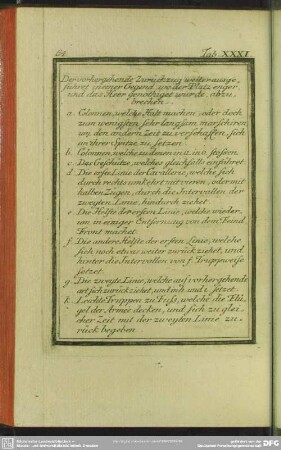 64. Tab XXXI
Der vorhergehende Zurückzug weiter ausge-
führet in einer Gegend, wo der Platz enger,
und das Heer genöthiget wurde, abzu-
brechen.
a. Colonnen, welche Halt machen oder doch
zum wenigsten sehr langsam marschiren,
um den andern Zeit zu verschaffen, sich
an ihrer Spitze zu setzen.
b. Colonnen, welche zu denen in a. in o. stossen.
c. Das Geschütze, welches gleichfalls einfähret.
d. Die erste Linie der Cavallerie, welche sich
durch rechts umkehrt mit vieren, oder mit
halben Zügen, durch die Intervallen der
zweyten Linie, hindurch ziehet.
e. Die Helfte der ersten Linie, welche wieder,
um in einiger Entfernung von dem Feind
Front machet.
f. Die andere Helfte der ersten Linie, welche
sich noch etwas weiter zurück ziehet, und
hinter die Intervallen von f Truppweise
setzet.
g. Die zweyte Linie, welche auf vorhergehende
art sich zurück ziehet, und in h. und i. setzet.
k. Leichte Truppen zu Fuss, welche die Flü-
gel der Armee decken, und sich zu glei-
cher Zeit mit der zweyten Linie zu-
rück begeben.
DFG